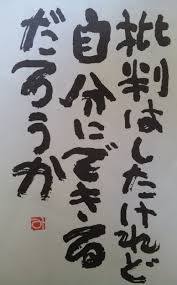 批判はしたけれど
自分にできる
だろうか